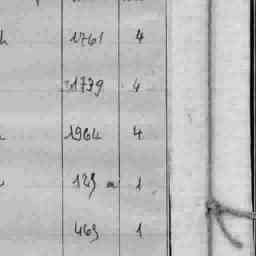 1761 4
31739 4
1964 4
129 a 1
469 1